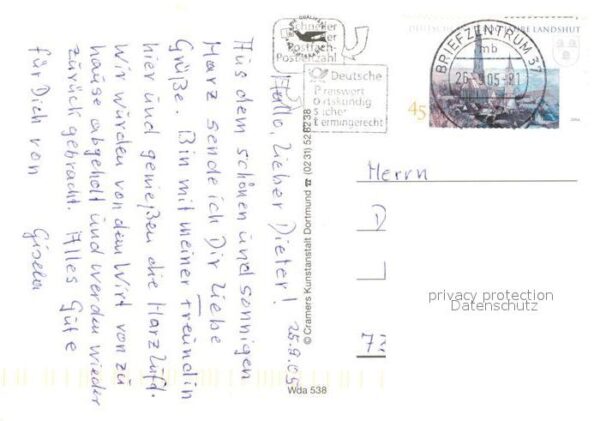 25.9.05
Hallo, lieber Dieter!
Aus dem schönen und sonnigen
Harz sende ich Dir liebe
Grüße. Bin mit meiner Freundin
hier und genießen die Harzluft.
Wir wurden von dem Wirt von zu
hause abgeholt und werden wieder
zurück gebracht. Alles Gute
für Dich von Gisela
© Cramers Kunstanstalt Dortmund ☎ (02 31) 52 82 38
Wda 538
Schneller
Postfach-
Postleitzahl
Deutsche
Preiswert
Ortskundig
Sicher
Termingerecht
BRIEFZENTRUM 37
mb
26.9.05-21
JAHRE LANDSHUT
45
Herrn
D
L
72
privacy protection
Datenschutz